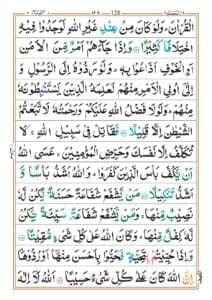 128
الْقُرْاٰنَ ؕ وَلَوْ كَانَ مِنْ عِنْدِ غَيْرِ اللّٰهِ لَوَجَدُوْا فِيْهِ
اخْتِلَافًا كَثِيْرًا ۝ وَاِذَا جَآءَهُمْ اَمْرٌ مِّنَ الْاَمْنِ
اَوِ الْخَوْفِ اَذَاعُوْا بِهٖ ؕ وَلَوْ رَدُّوْهُ اِلَى الرَّسُوْلِ وَ
اِلٰٓى اُولِى الْاَمْرِ مِنْهُمْ لَعَلِمَهُ الَّذِيْنَ يَسْتَنْۢبِطُوْنَهٗ
مِنْهُمْ ؕ وَلَوْلَا فَضْلُ اللّٰهِ عَلَيْكُمْ وَرَحْمَتُهٗ لَاتَّبَعْتُمُ
الشَّيْطٰنَ اِلَّا قَلِيْلًا ۝ فَقَاتِلْ فِيْ سَبِيْلِ اللّٰهِ ۚ لَا
تُكَلَّفُ اِلَّا نَفْسَكَ وَحَرِّضِ الْمُؤْمِنِيْنَ ۚ عَسَى اللّٰهُ
اَنْ يَّكُفَّ بَاْسَ الَّذِيْنَ كَفَرُوْا ؕ وَاللّٰهُ اَشَدُّ بَاْسًا وَّ
اَشَدُّ تَنْكِيْلًا ۝ مَنْ يَّشْفَعْ شَفَاعَةً حَسَنَةً يَّكُنْ لَّهٗ
نَصِيْبٌ مِّنْهَا ۚ وَمَنْ يَّشْفَعْ شَفَاعَةً سَيِّئَةً يَّكُنْ
لَّهٗ كِفْلٌ مِّنْهَا ؕ وَكَانَ اللّٰهُ عَلٰى كُلِّ شَيْءٍ مُّقِيْتًا ۝
وَاِذَا حُيِّيْتُمْ بِتَحِيَّةٍ فَحَيُّوْا بِاَحْسَنَ مِنْهَآ اَوْ رُدُّوْهَا ؕ
اِنَّ اللّٰهَ كَانَ عَلٰى كُلِّ شَيْءٍ حَسِيْبًا ۝ اَللّٰهُ لَآ اِلٰهَ